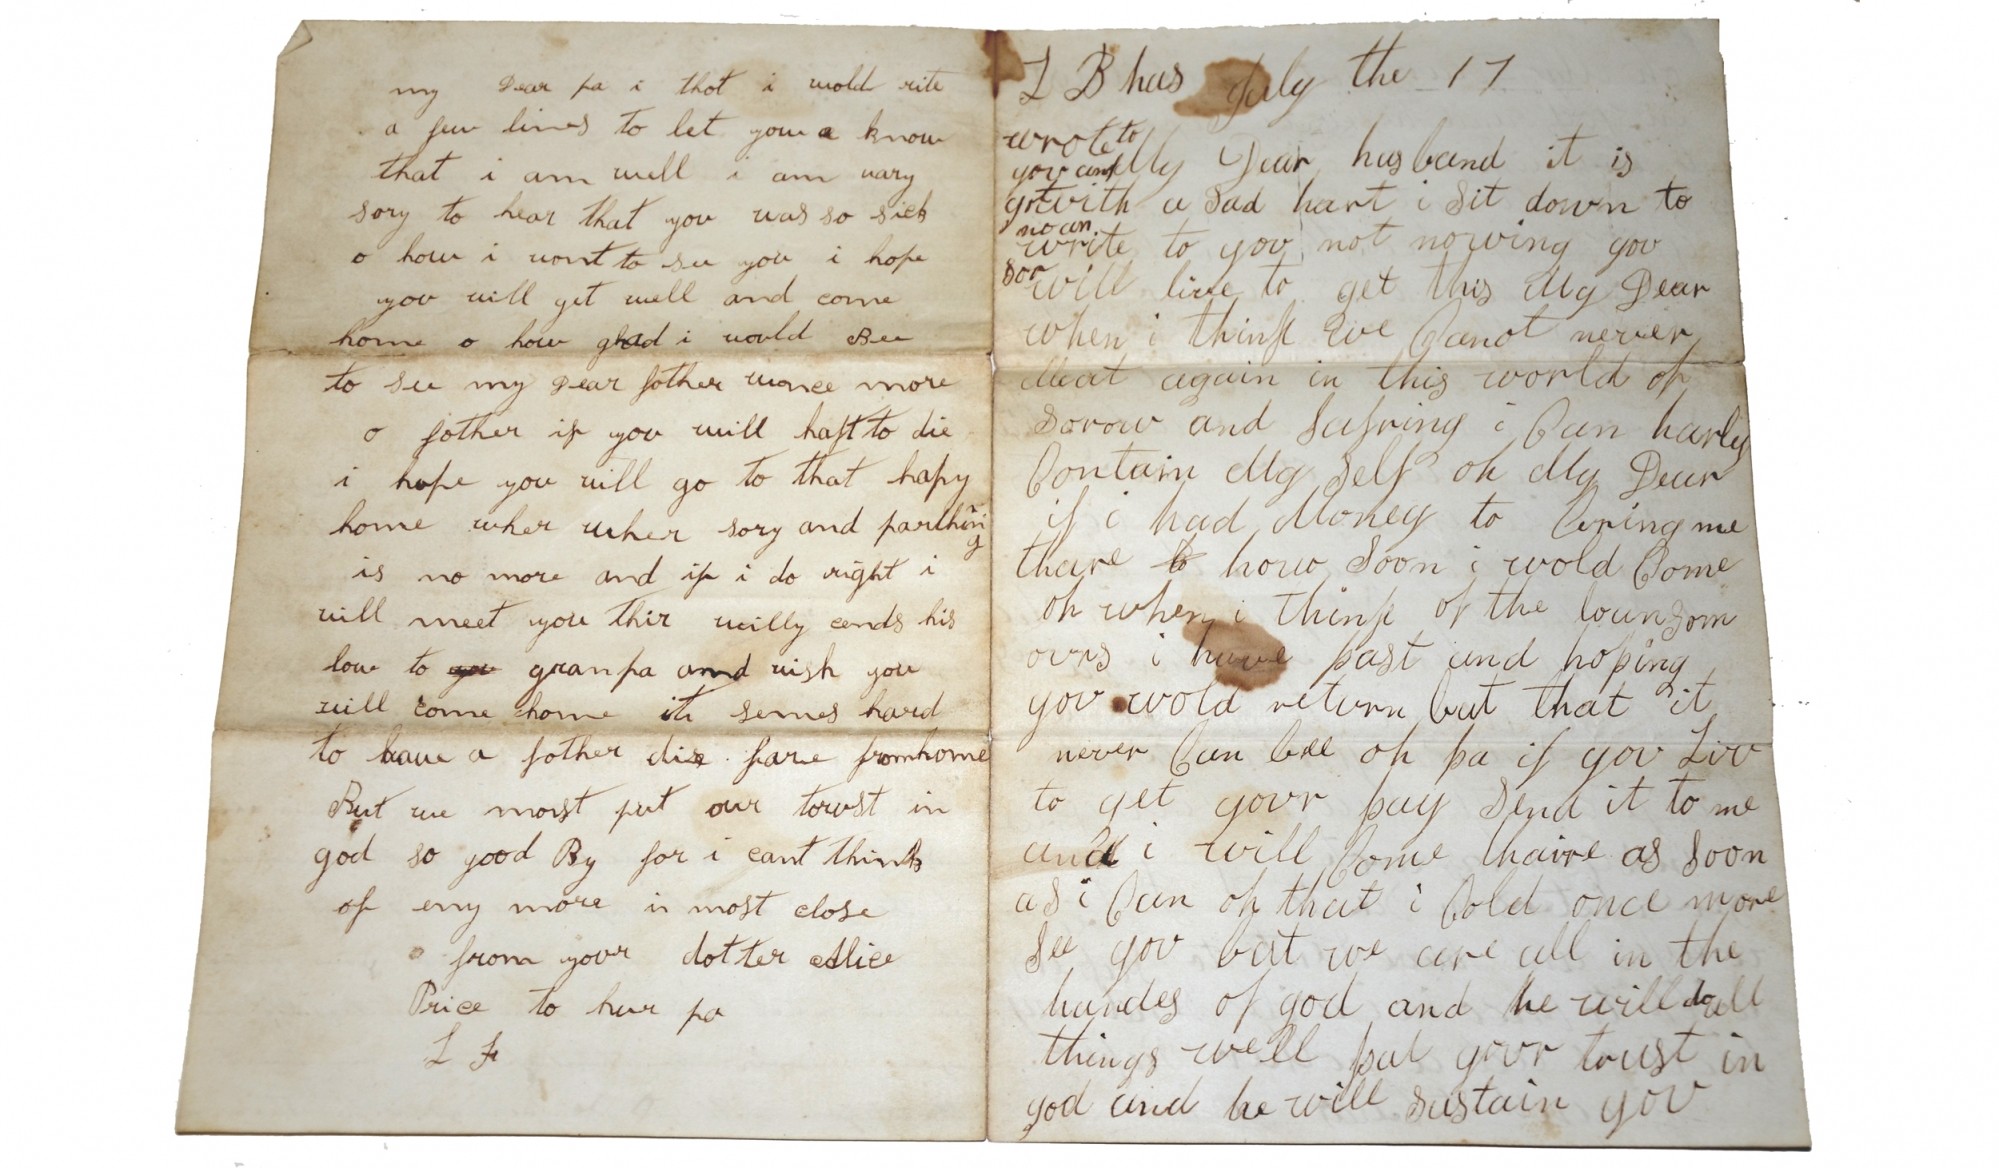 my Dear pa i thot i wold rite
a few lines to let you a know
that i am well i am vary
sory to hear that you was so sick
o how i wont to see you i hope
you will get well and come
home o how glad i would Bee
to see my Dear father wonce more
o father if you will haft to die
i hope you will go to that hapy
home wher wher sory and parthing
is no more and if i do right i
will meet you thir willy cends his
love to granpa and wish you
will come home it semes hard
to have a father die fare from home
But we most put our torust in
god so good By for i cant think
of eny more in most close
from your dotter Allice
Price to hur pa
L
L B has July the 17
wrote to
you and
got
no an
sor
My Dear husband it is
with a sad hart i sit down to
write to you not nowing you
will live to get this My Dear
when i think we Canot never
Meat again in this world of
sorow and sufring i Can harly
Contain My self oh My Dear
if i had Money to bring me
thare how soon i wold Come
oh when i think of the lounsom
ours i have past and hoping
you wold return but that it
never Can bee oh pa if you Liv
to get your pay send it to me
and i will Come thaire as soon
as i Can oh that i Cold once more
see you but we are all in the
handes of god and he will do all
things well put your trust in
god and he will sustain you